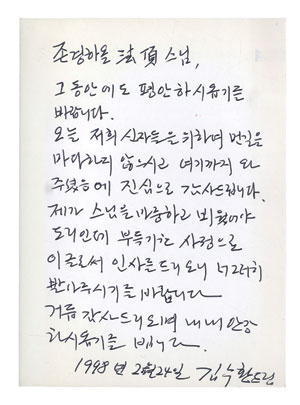 존경하올 法頂 스님,
그동안에도 평안하시옵기를
바랍니다.
오늘 저희 신자들을 위하여 먼길을
마다하지 않으시고 여기까지 와
주셨음에 진심으로 감사드립니다.
제가 스님을 마중하고 뵈웠어야
도리인데 부득기한 사정으로
이글로써 인사를 드리오니 너그러히
받아주시기를 바랍니다
거듭 감사드리오며 내내 안강
하시옵기를 빕니다.
1998년 2월24일 김수환드림